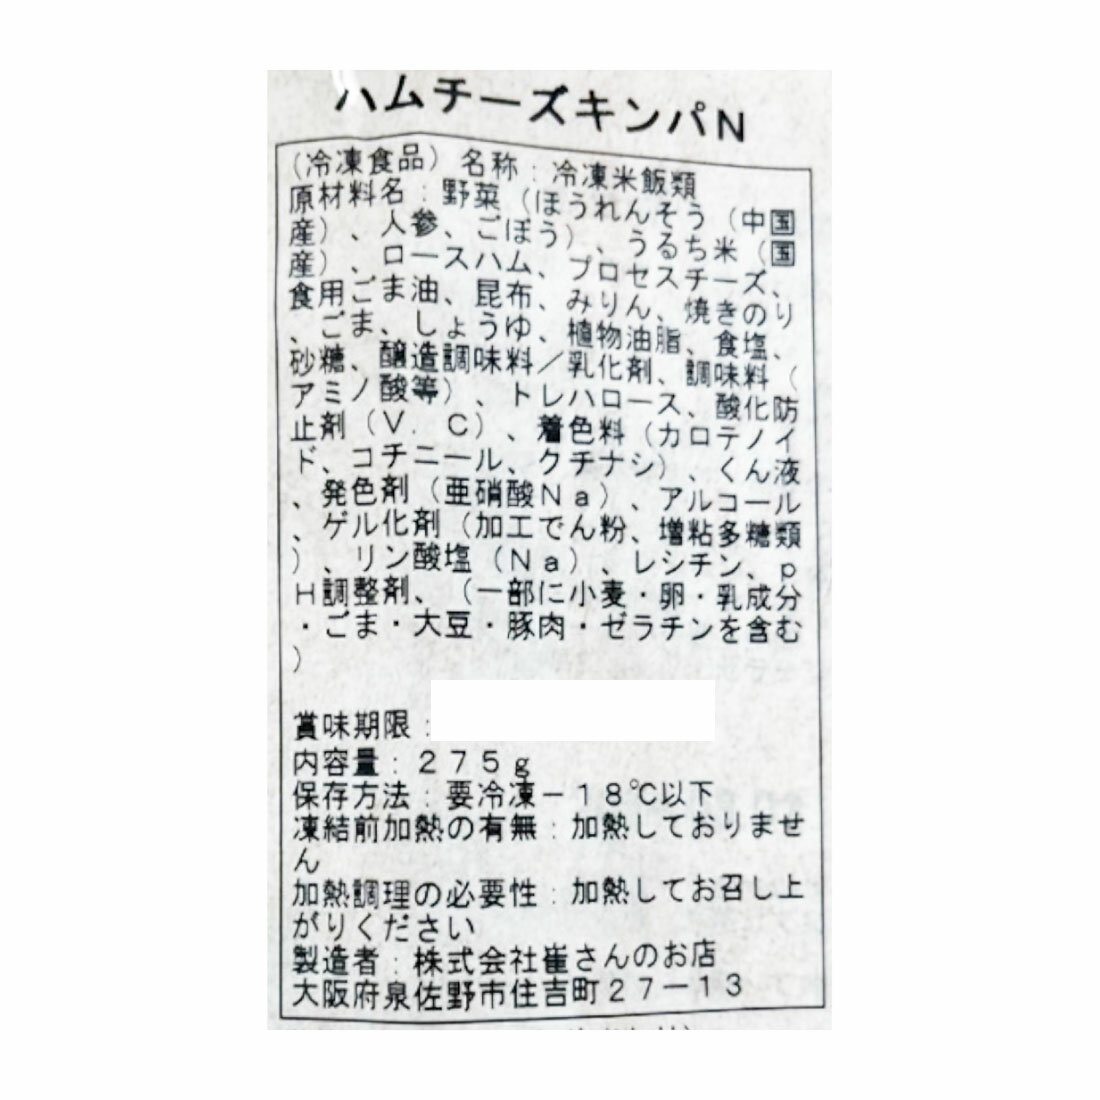 ハムチーズキンパN
(冷凍食品) 名称:冷凍米飯類
原材料名:野菜(ほうれんそう(中国
産)、人参、ごぼう)、うるち米(国
産)、ロースハム、プロセスチーズ、
食用ごま油、昆布、みりん、焼きのり
、ごま、しょうゆ、植物油脂、食塩、
砂糖、醸造調味料/乳化剤、調味料(
アミノ酸等)、トレハロース、酸化防
止剤(V.C)、着色料(カロテノイ
ド、コチニール、クチナシ)、くん液
、発色剤(亜硝酸Na)、アルコール
、ゲル化剤(加工でん粉、増粘多糖類
)、リン酸塩(Na)、レシチン、p
H調整剤、(一部に小麦・卵・乳成分
・ごま・大豆・豚肉・ゼラチンを含む
)
賞味期限:
内容量:275g
保存方法:要冷凍-18℃以下
凍結前加熱の有無:加熱しておりませ
ん
加熱調理の必要性:加熱してお召し上
がりください
製造者:株式会社崔さんのお店
大阪府泉佐野市住吉町27-13